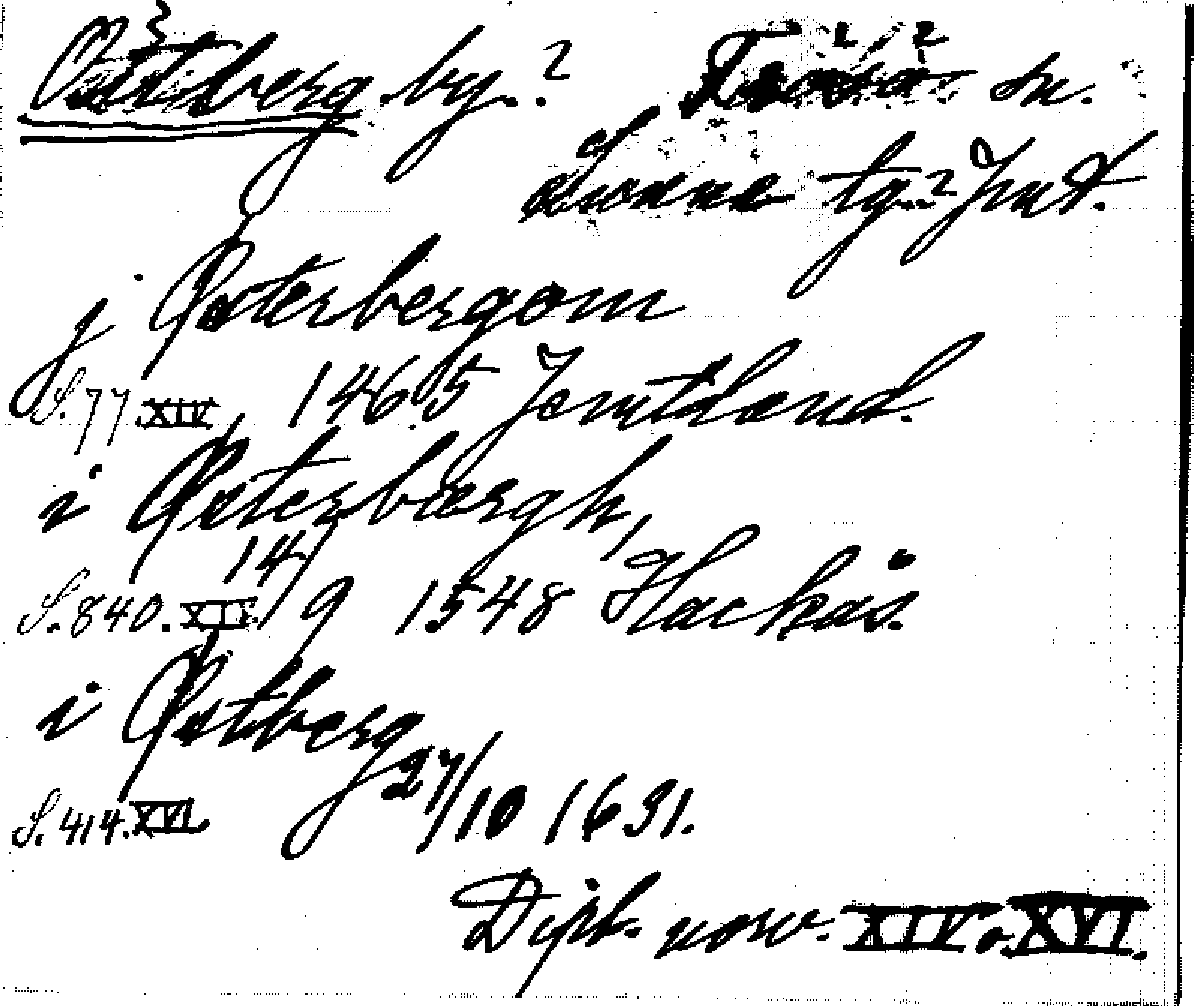 Östberg by.² Frösö² sn.
Sunne tg.² Jmt.
j Østerbergom
S. 77 XIV, 1465 Jemtland.
i Østerbærgh,
S. 840. XII. 14/9 1548 Hackås.
i Østberg
S. 414. XVI 27/10 1631.
Dipl. norv. XIV o. XVI.